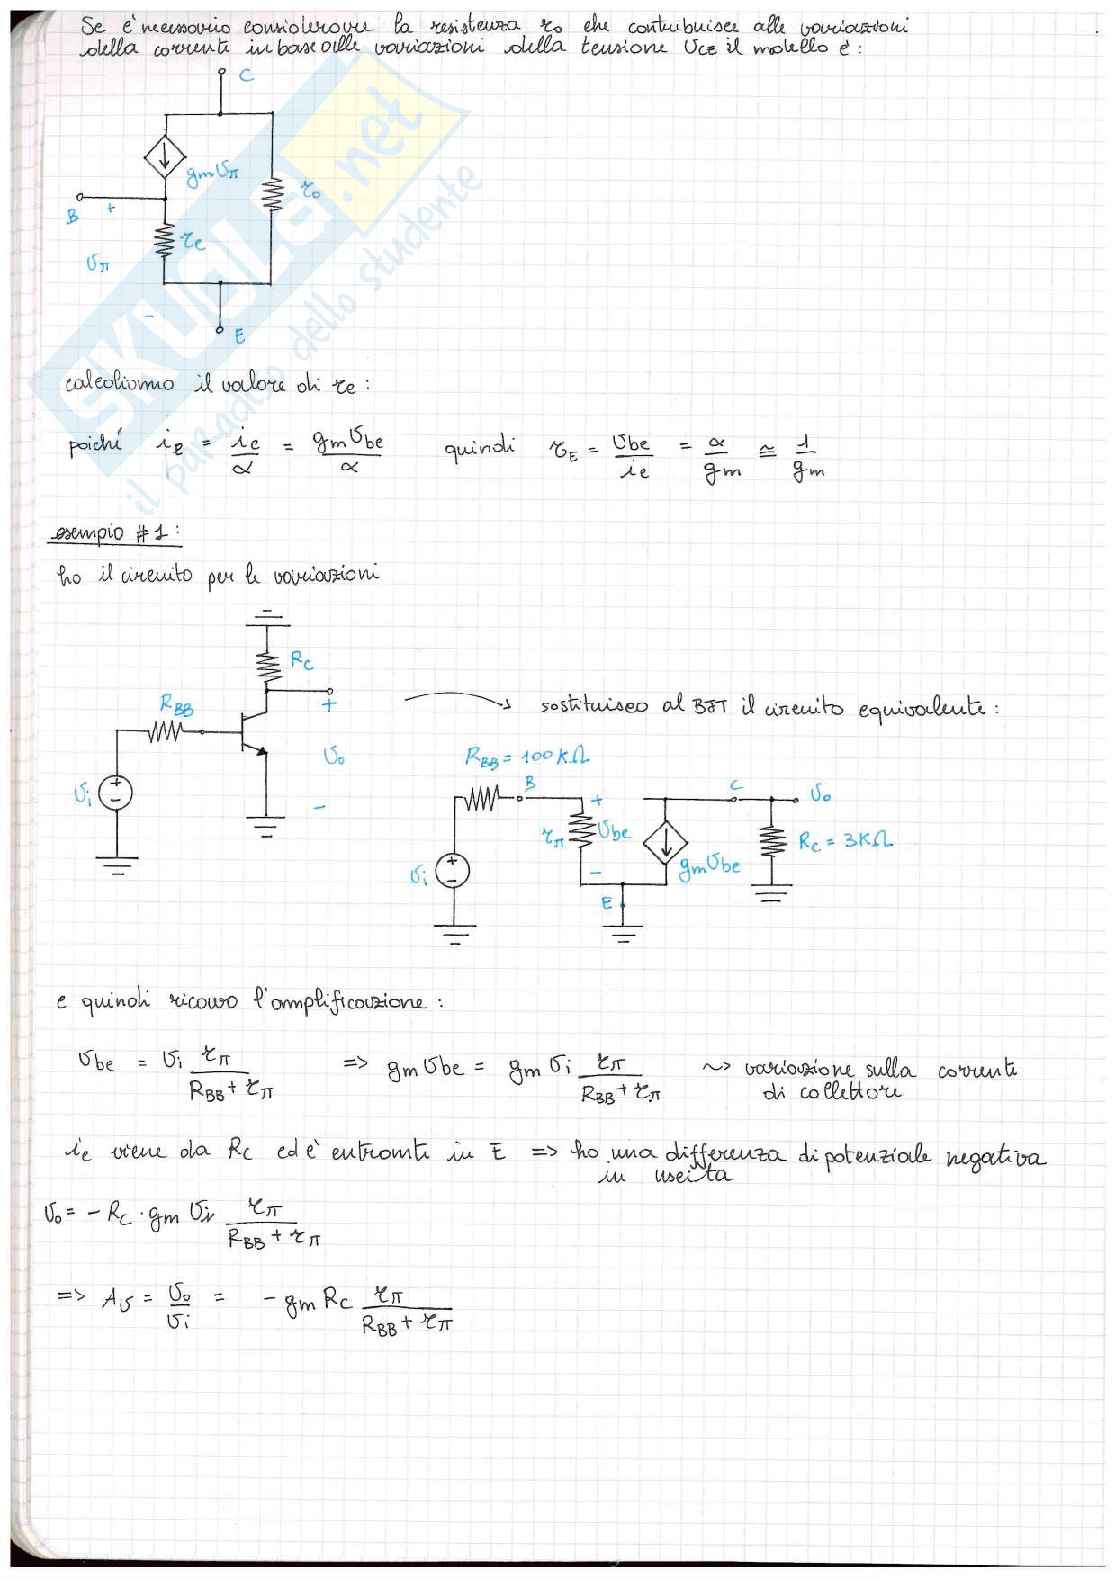 Se è necessario considerare la resistenza ro che contribuisce alle variazioni
della corrente in base alle variazioni della tensione Vce il modello è:
C
gm vπ
ro
B
+
re
vπ
-
E
SKUOLA.net
il paradiso dello studente
calcoliamo il valore di re:
poiché ie = ic/α = gm vbe/α quindi rE = vbe/ie = α/gm ≅ 1/gm
esempio #1:
ho il circuito per le variazioni
RC
RBB
+
vo
-
vi
+
-
sostituisco al BJT il circuito equivalente:
RBB = 100KΩ
B
C
vo
+
rπ
vbe
-
gm vbe
RC = 3KΩ
vi
+
-
E
e quindi ricavo l'amplificazione:
vbe = vi rπ/(RBB + rπ) => gm vbe = gm vi rπ/(RBB + rπ) ~> variazione sulla corrente
di collettore
ic viene da RC ed è entrante in E => ho una differenza di potenziale negativa
in uscita
vo = - RC · gm vi rπ/(RBB + rπ)
=> AS = vo/vi = - gm RC rπ/(RBB + rπ)